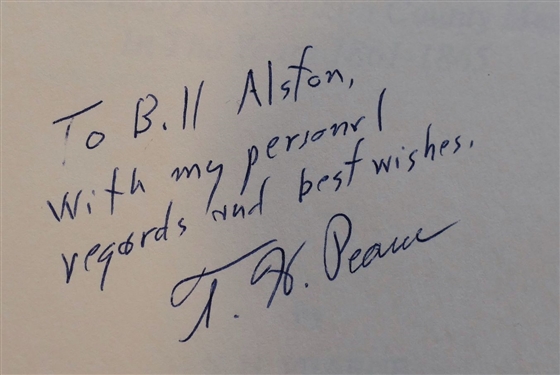 To Bill Alston,
With my personal
regards and best wishes.
T. H. Pearce